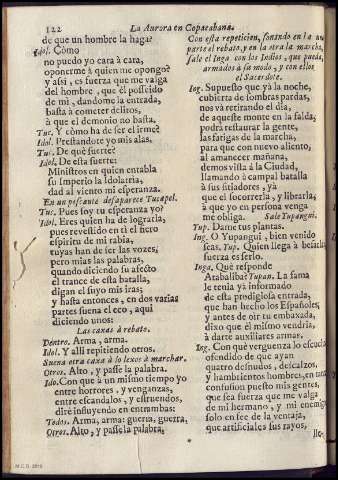 122
La Aurora en Copacabana.
de que un hombre la haga?
Idol. Cómo
no puedo yo cara à cara,
oponerme à quien me opongo?
y assi, es fuerza que me valga
del hombre, que èl posseìdo
de mi, dandome la entrada,
basta à cometer delitos,
à que el demonio no basta.
Tuc. Y còmo ha de ser el irme?
Idol. Prestandote yo mis alas.
Tuc. De què suerte?
Idol. De esta suerte:
Ministros en quien entabla
su Imperio la Idolatria,
dad al viento mi esperanza.
En un pescante desaparece Tucapel.
Tuc. Pues soy tu esperanza yo?
Idol. Eres quien ha de lograrla,
pues revestido en ti el fiero
espiritu de mi rabia,
tuyas han de ser las vozes,
pero mias las palabras,
quando diciendo su afecto
el trance de esta batalla,
digan el suyo mis iras;
y hasta entonces, en dos varias
partes suena el eco, aqui
diciendo unos:
Las caxas à rebato.
Dentro. Arma, arma.
Idol. Y alli repitiendo otros.
Suena otra caxa à lo lexos à marchar.
Otros. Alto, y passe la palabra.
Ido. Con que à un mismo tiempo yo
entre horrores, y venganzas,
entre escandalos, y estruendos,
dirè influyendo en entrambas:
Todos. Arma, arma: guerra, guerra,
Otros. Alto, y passe la palabra.
Con esta repeticion, sonando en la una
parte el rebato, y en la otra la marcha,
sale el Inga con los Indios, que pueda,
armados à su modo, y con ellos
el Sacerdote.
Ing. Supuesto que yà la noche,
cubierta de sombras pardas,
nos và retirando el dia,
de aqueste monte en la falda,
podrà restaurar la gente,
las fatigas de la marcha,
para que con nuevo aliento,
al amanecer mañana,
demos vista à la Ciudad,
llamando à campal batalla
à sus sitiadores, yà
que el socorrerla, y librarla,
à que yo en persona venga
me obliga. Sale Yupangui.
Yup. Dame tus plantas.
Ing. O Yupangui, bien venido
seas. Yup. Quien llega à besarlas
fuerza es serlo.
Inga. Què responde
Atabaliba? Yupan. La fama
le tenia yà informado
de esta prodigiosa entrada,
que han hecho los Españoles,
y antes de oir tu embaxada,
dixo que èl mismo vendria,
à darte auxiliares armas.
Ing. Con què verguenza lo escucho
ofendido de que ayan
quatro desnudos, descalzos,
y hambrientos hombres, en tanta
confusion puesto mis gentes,
que sea fuerza que me valga
de mi hermano, y mi enemigo
solo en fee de la ventaja,
que artificiales sus rayos,